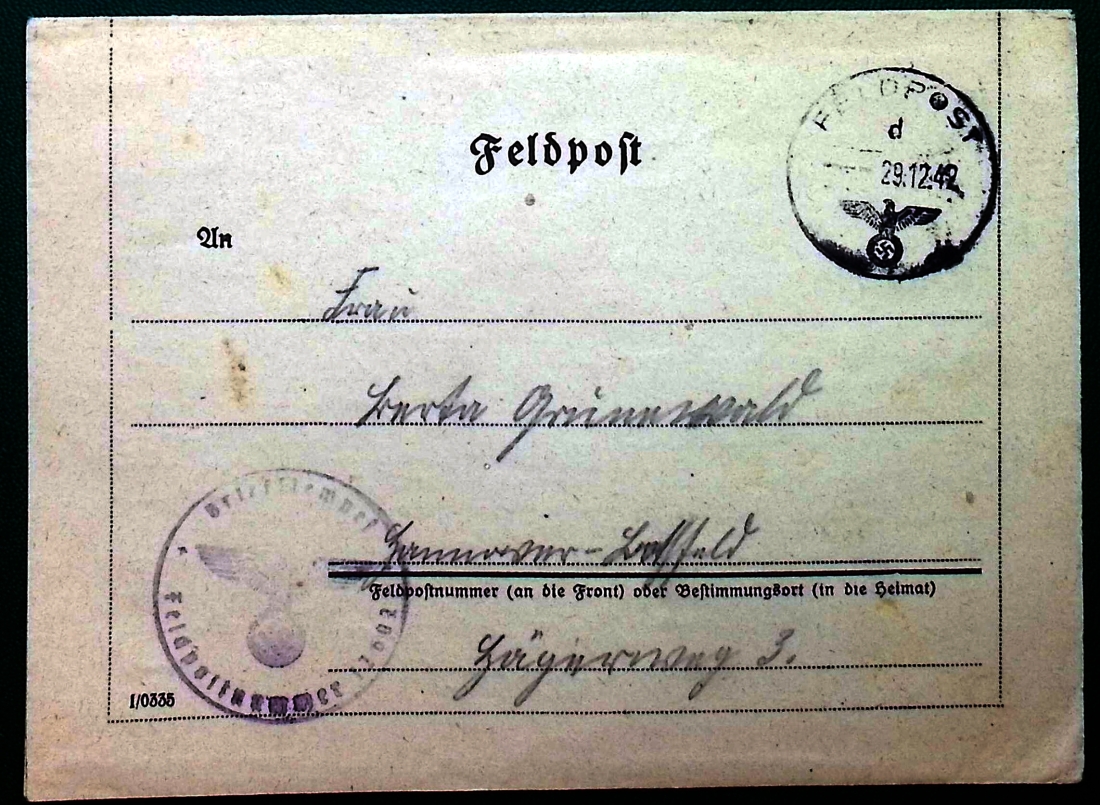 FELDPOST
d
29.12.42
Feldpost
An
Frau
Berta Grünewald
Hannover-Bothfeld
Feldpostnummer (an die Front) oder Bestimmungsort (in die Heimat)
Jägerweg 3.
Briefstempel
Feldpostnummer
I/0335